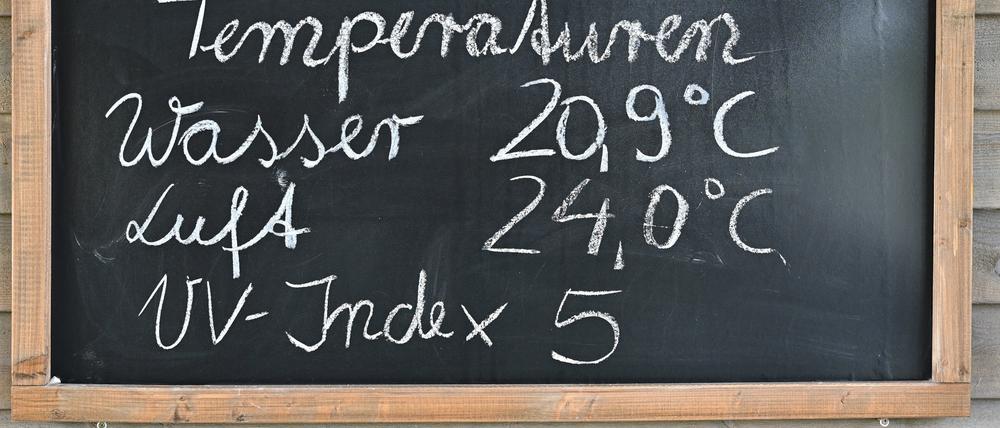 Temperaturen
Wasser 20,9°C
Luft 24,0°C
UV-Index 5